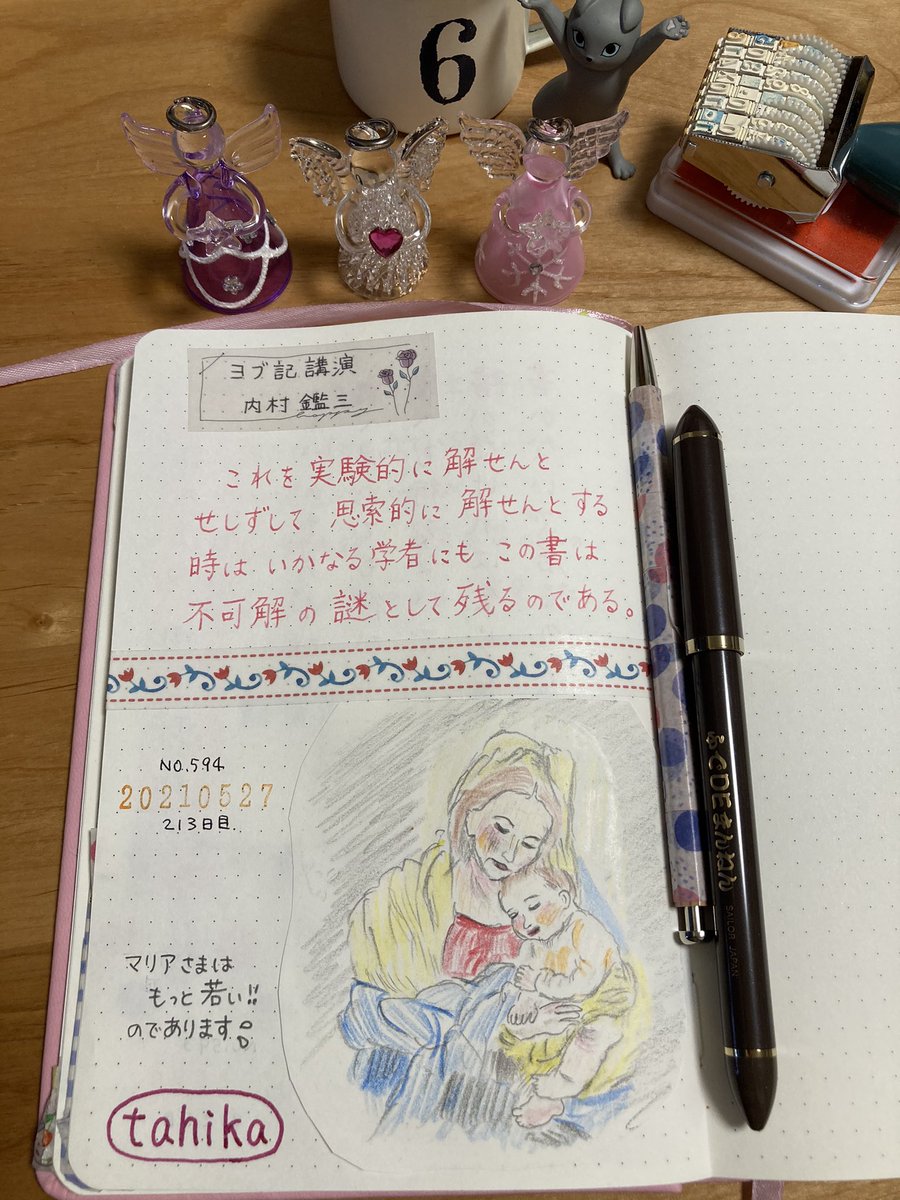 6
ヨブ記講演
内村鑑三
happy
これを実験的に解せんと
せしずして 思索的に 解せんとする
時は いかなる学者にも この書は
不可解の謎として残るのである。
NO.594
20210527
213日目
マリアさまは
もっと若い!!
のであります!
tahika
ふでDEまんねん
SAILOR JAPAN